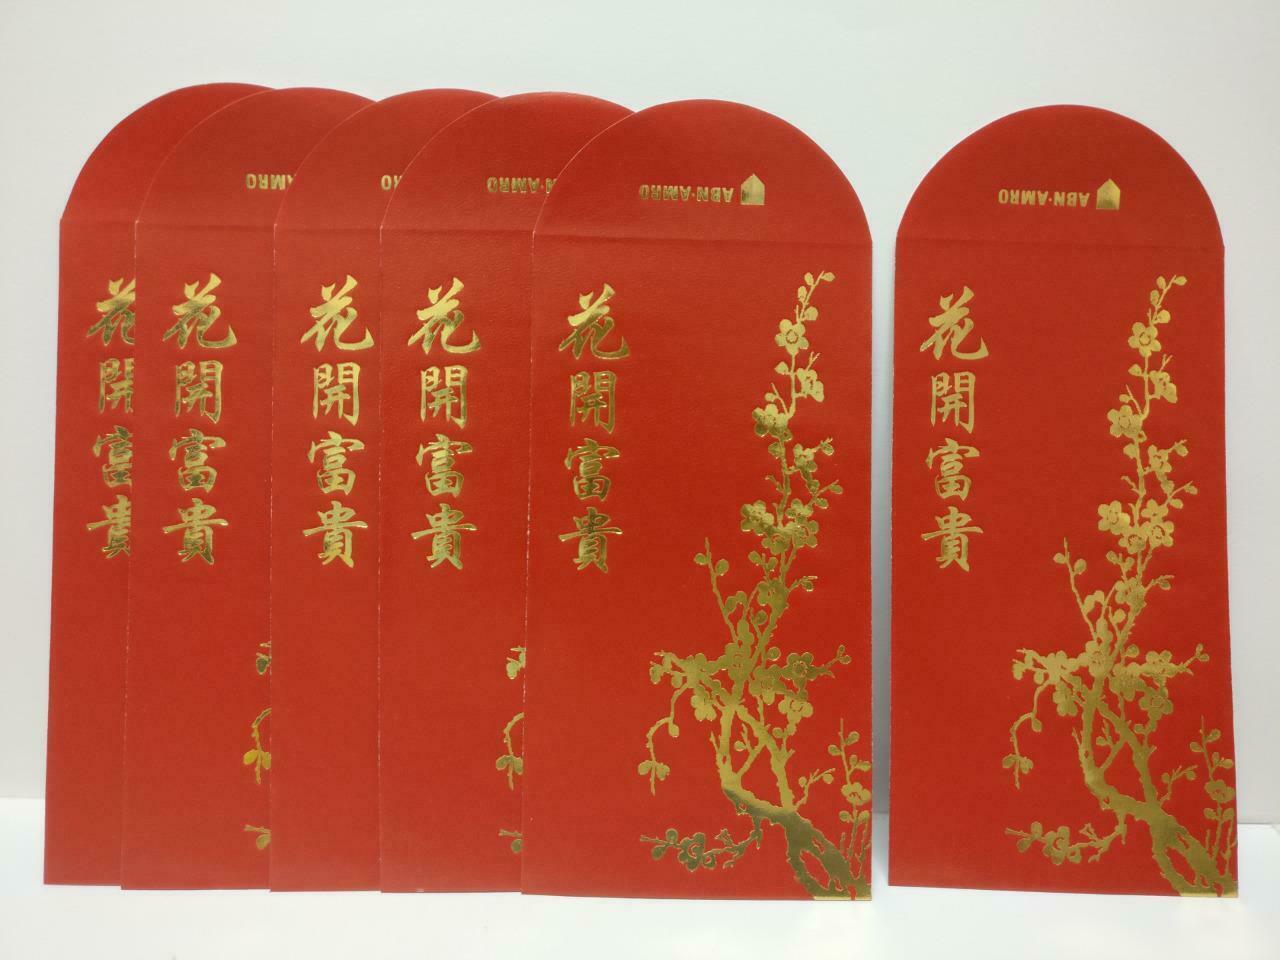 AMRO
ABN·AMRO
ABN·AMRO
ABN·AMRO
花開富貴
花開富貴
花開富貴
花開富貴
花開富貴
花開富貴